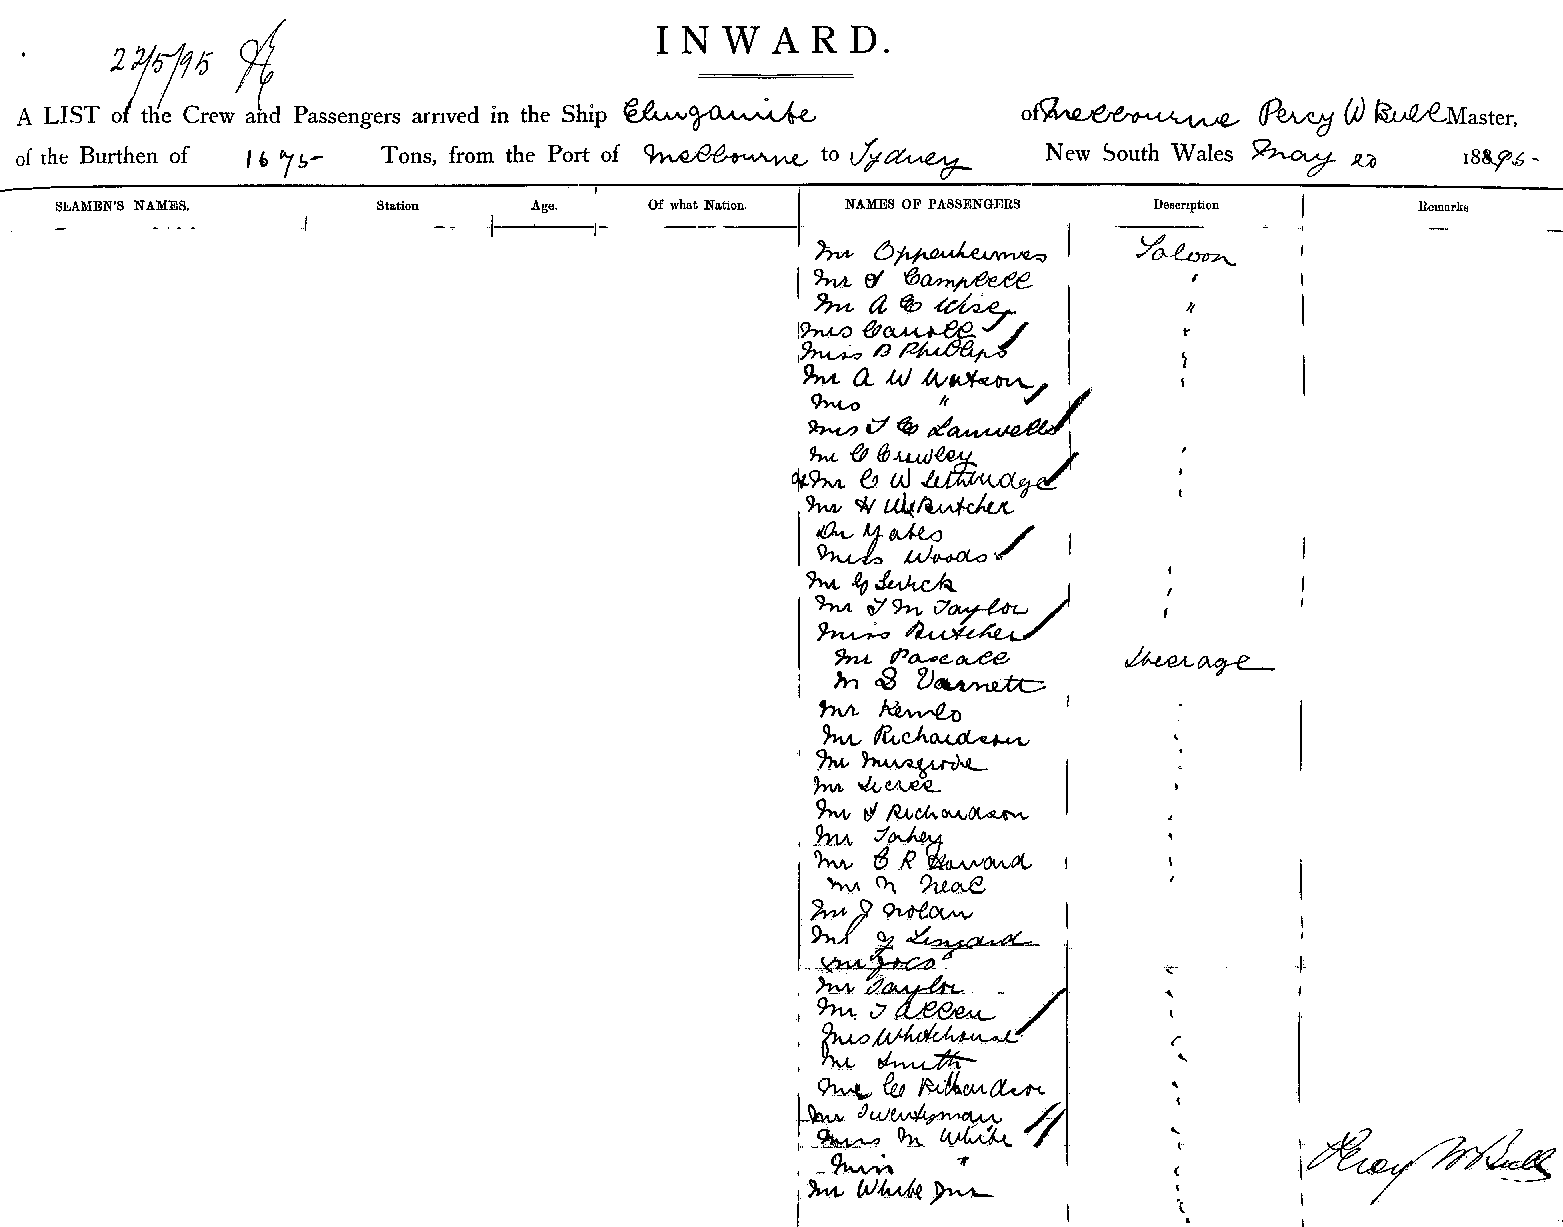 INWARD.
22/5/95
A LIST of the Crew and Passengers arrived in the Ship Elingamite of Melbourne Percy W Bull Master,
of the Burthen of 1675 Tons, from the Port of Melbourne to Sydney New South Wales May 20 1895
SEAMEN'S NAMES. Station Age. Of what Nation. NAMES OF PASSENGERS Description Remarks
Mr Oppenheimer Saloon
Mr J Campbell "
Mr A E Wise "
Mrs Carroll "
Miss B Phillips "
Mr A W Watson "
Mrs "
Mrs T C
Mr C Crowley "
Mr C W Lethbridge "
Mr H W Butcher
Dr Yates
Miss Woods
Mr G "
Mr T M Taylor "
Miss Butcher "
Mr Pascall Steerage
Mr S Varnett
Mr Kemlo "
Mr Richardson "
Mr Musgrove "
Mr "
Mr J Richardson "
Mr Fahey "
Mr C R Howard "
Mr N Neal "
Mr J Nolan
Mr J Lingard
Mr "
Mr Taylor "
Mr T Allen "
Mrs Whitehouse "
Mr Smith "
Mr C Richardson "
Mr Twentyman "
Miss M White "
Miss " "
Mr White Jnr "
Percy W Bull